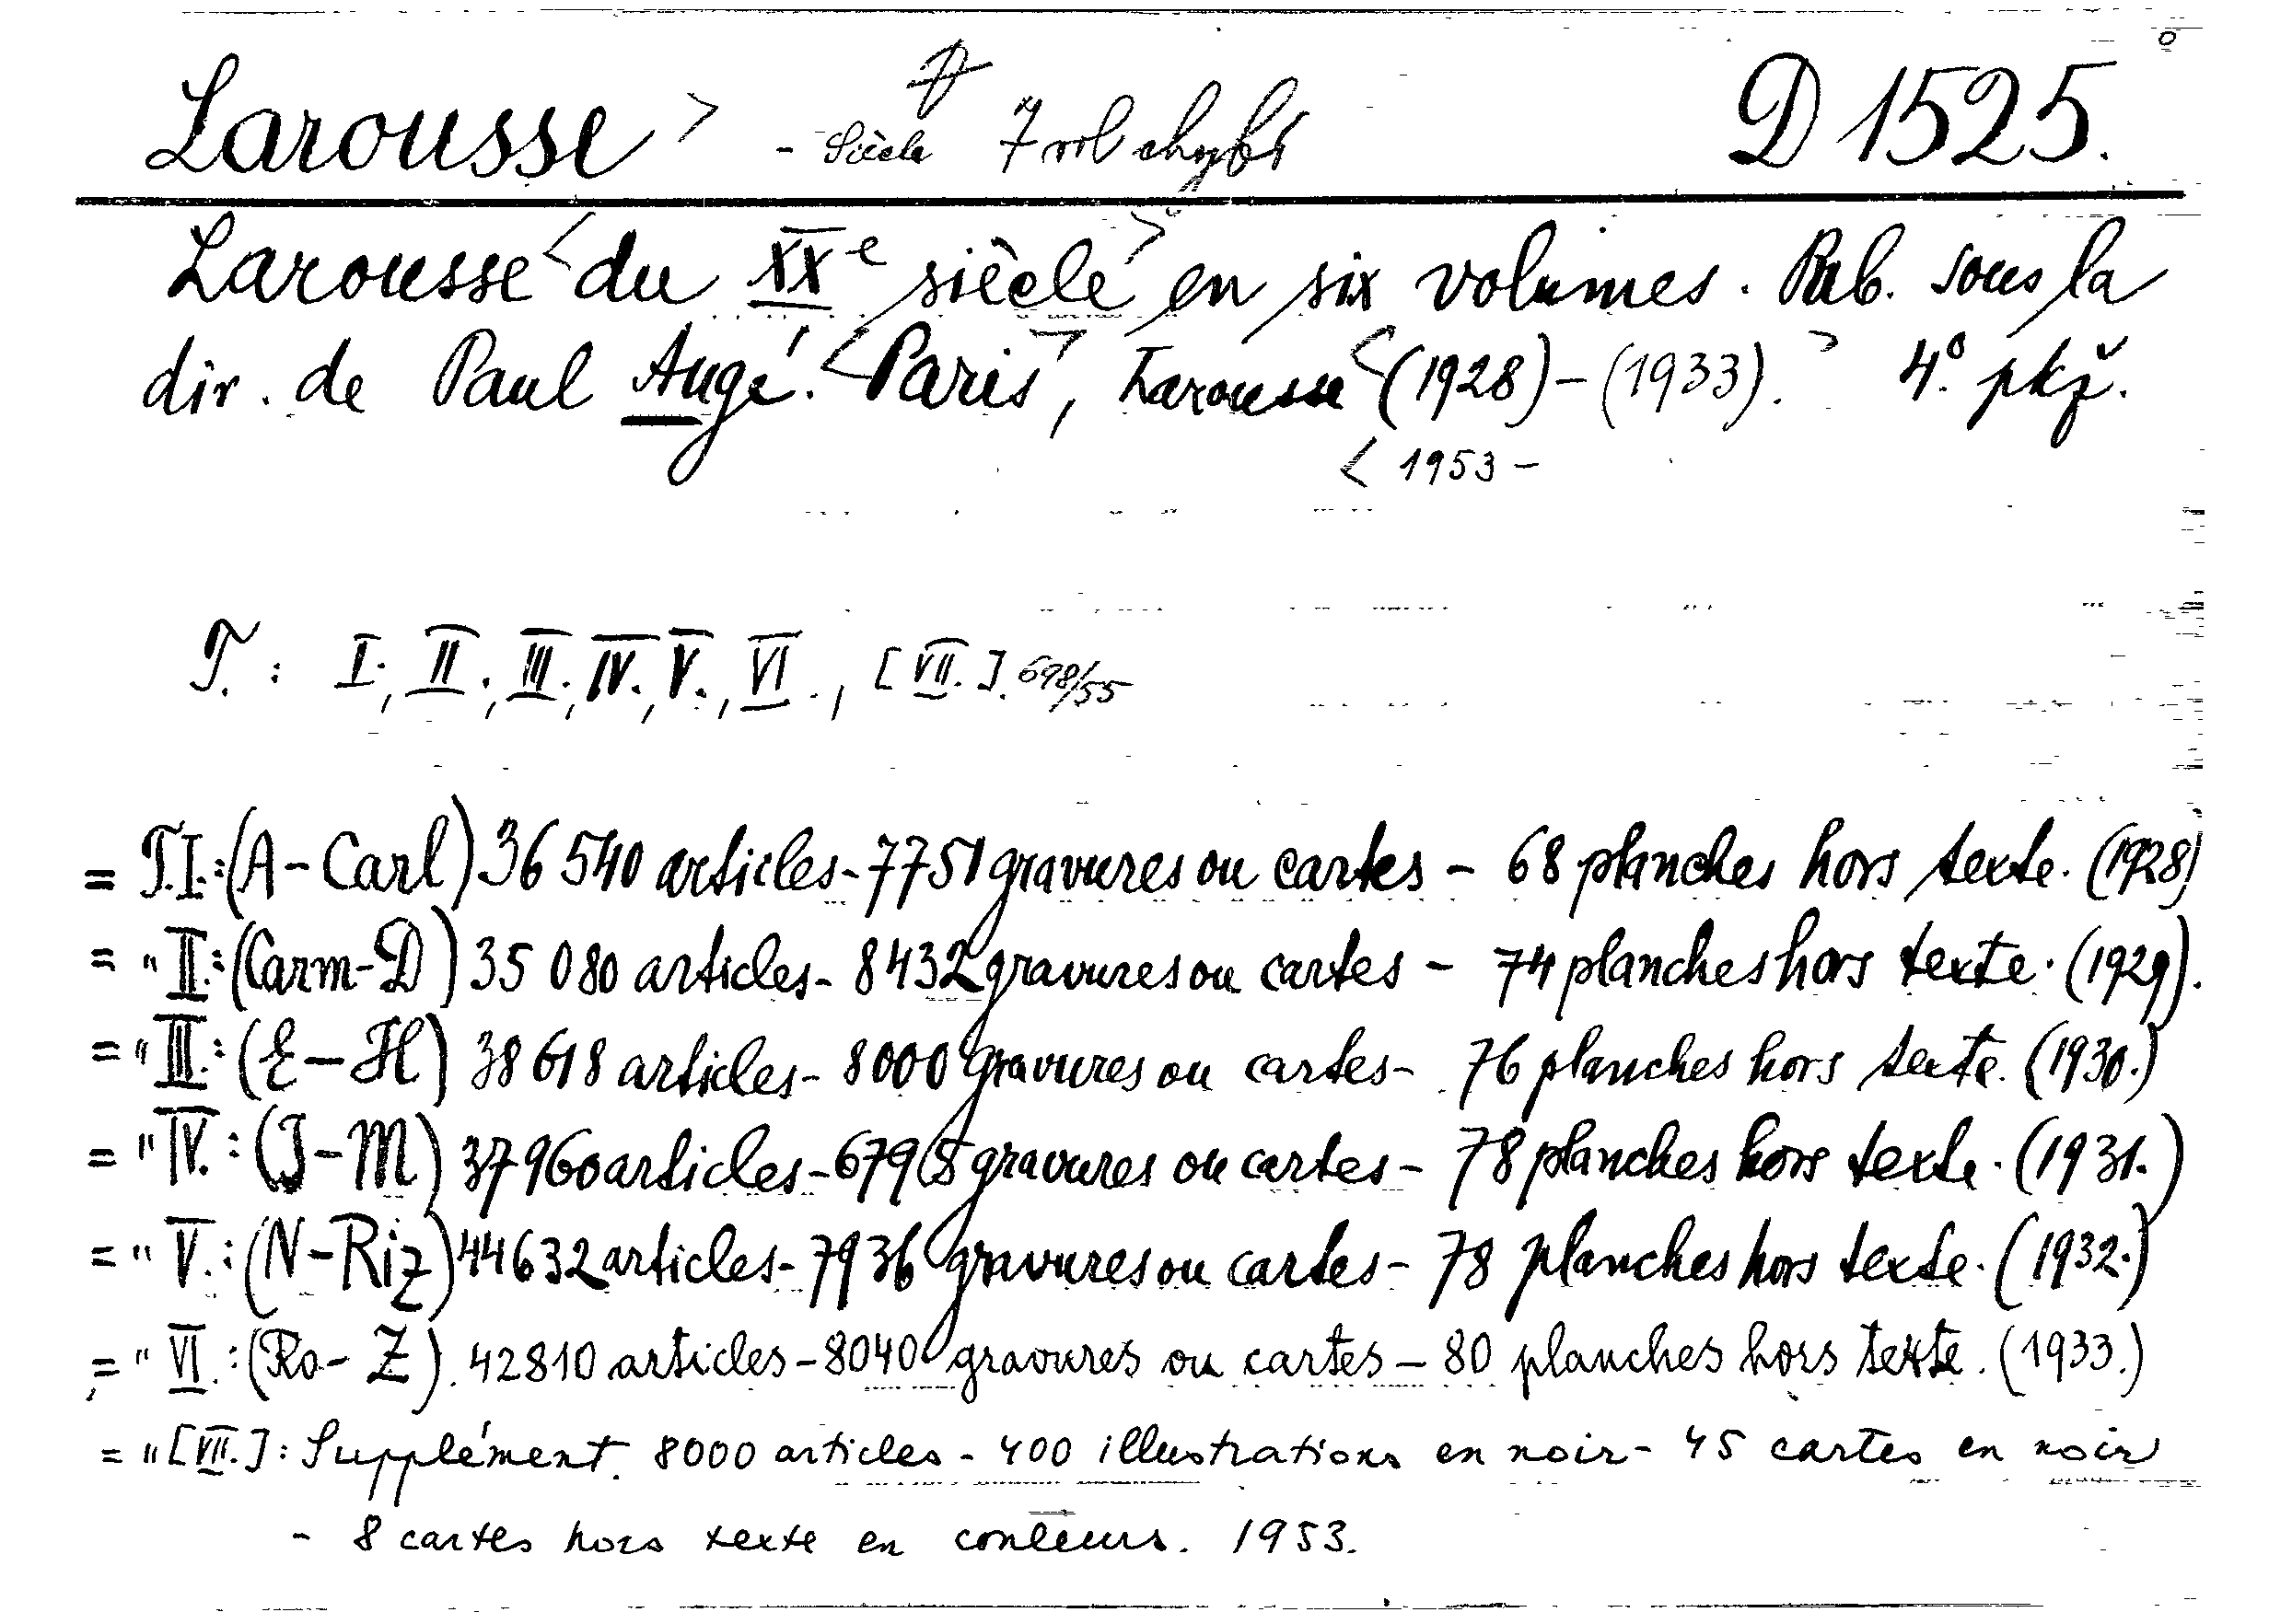 Larousse > - Siècle 7 vol chybí D 1525.
Larousse < du XXe siècle > en six volumes. Pub. sous la
dir. de Paul Augé. < Paris >, Larousse < (1928) - (1933). > 4° pkž.
< 1953 -
T. : I., II., III., IV., V., VI., [VII.]. 698/55
= T.I.: (A - Carl) 36 540 articles - 7751 gravures ou cartes - 68 planches hors texte. (1928)
= " II.: (Carm - D) 35 080 articles - 8432 gravures ou cartes - 74 planches hors texte. (1929).
= " III.: (E - H) 38 618 articles - 8000 gravures ou cartes - 76 planches hors texte. (1930.)
= " IV.: (I - M) 37960 articles - 6798 gravures ou cartes - 78 planches hors texte. (1931.)
= " V.: (N - Riz) 44632 articles - 7936 gravures ou cartes - 78 planches hors texte. (1932.)
= " VI.: (Ro - Z). 42810 articles - 8040 gravures ou cartes - 80 planches hors texte. (1933.)
= " [VII.]: Supplément. 8000 articles - 400 illustrations en noir - 45 cartes en noir
- 8 cartes hors texte en couleurs. 1953.